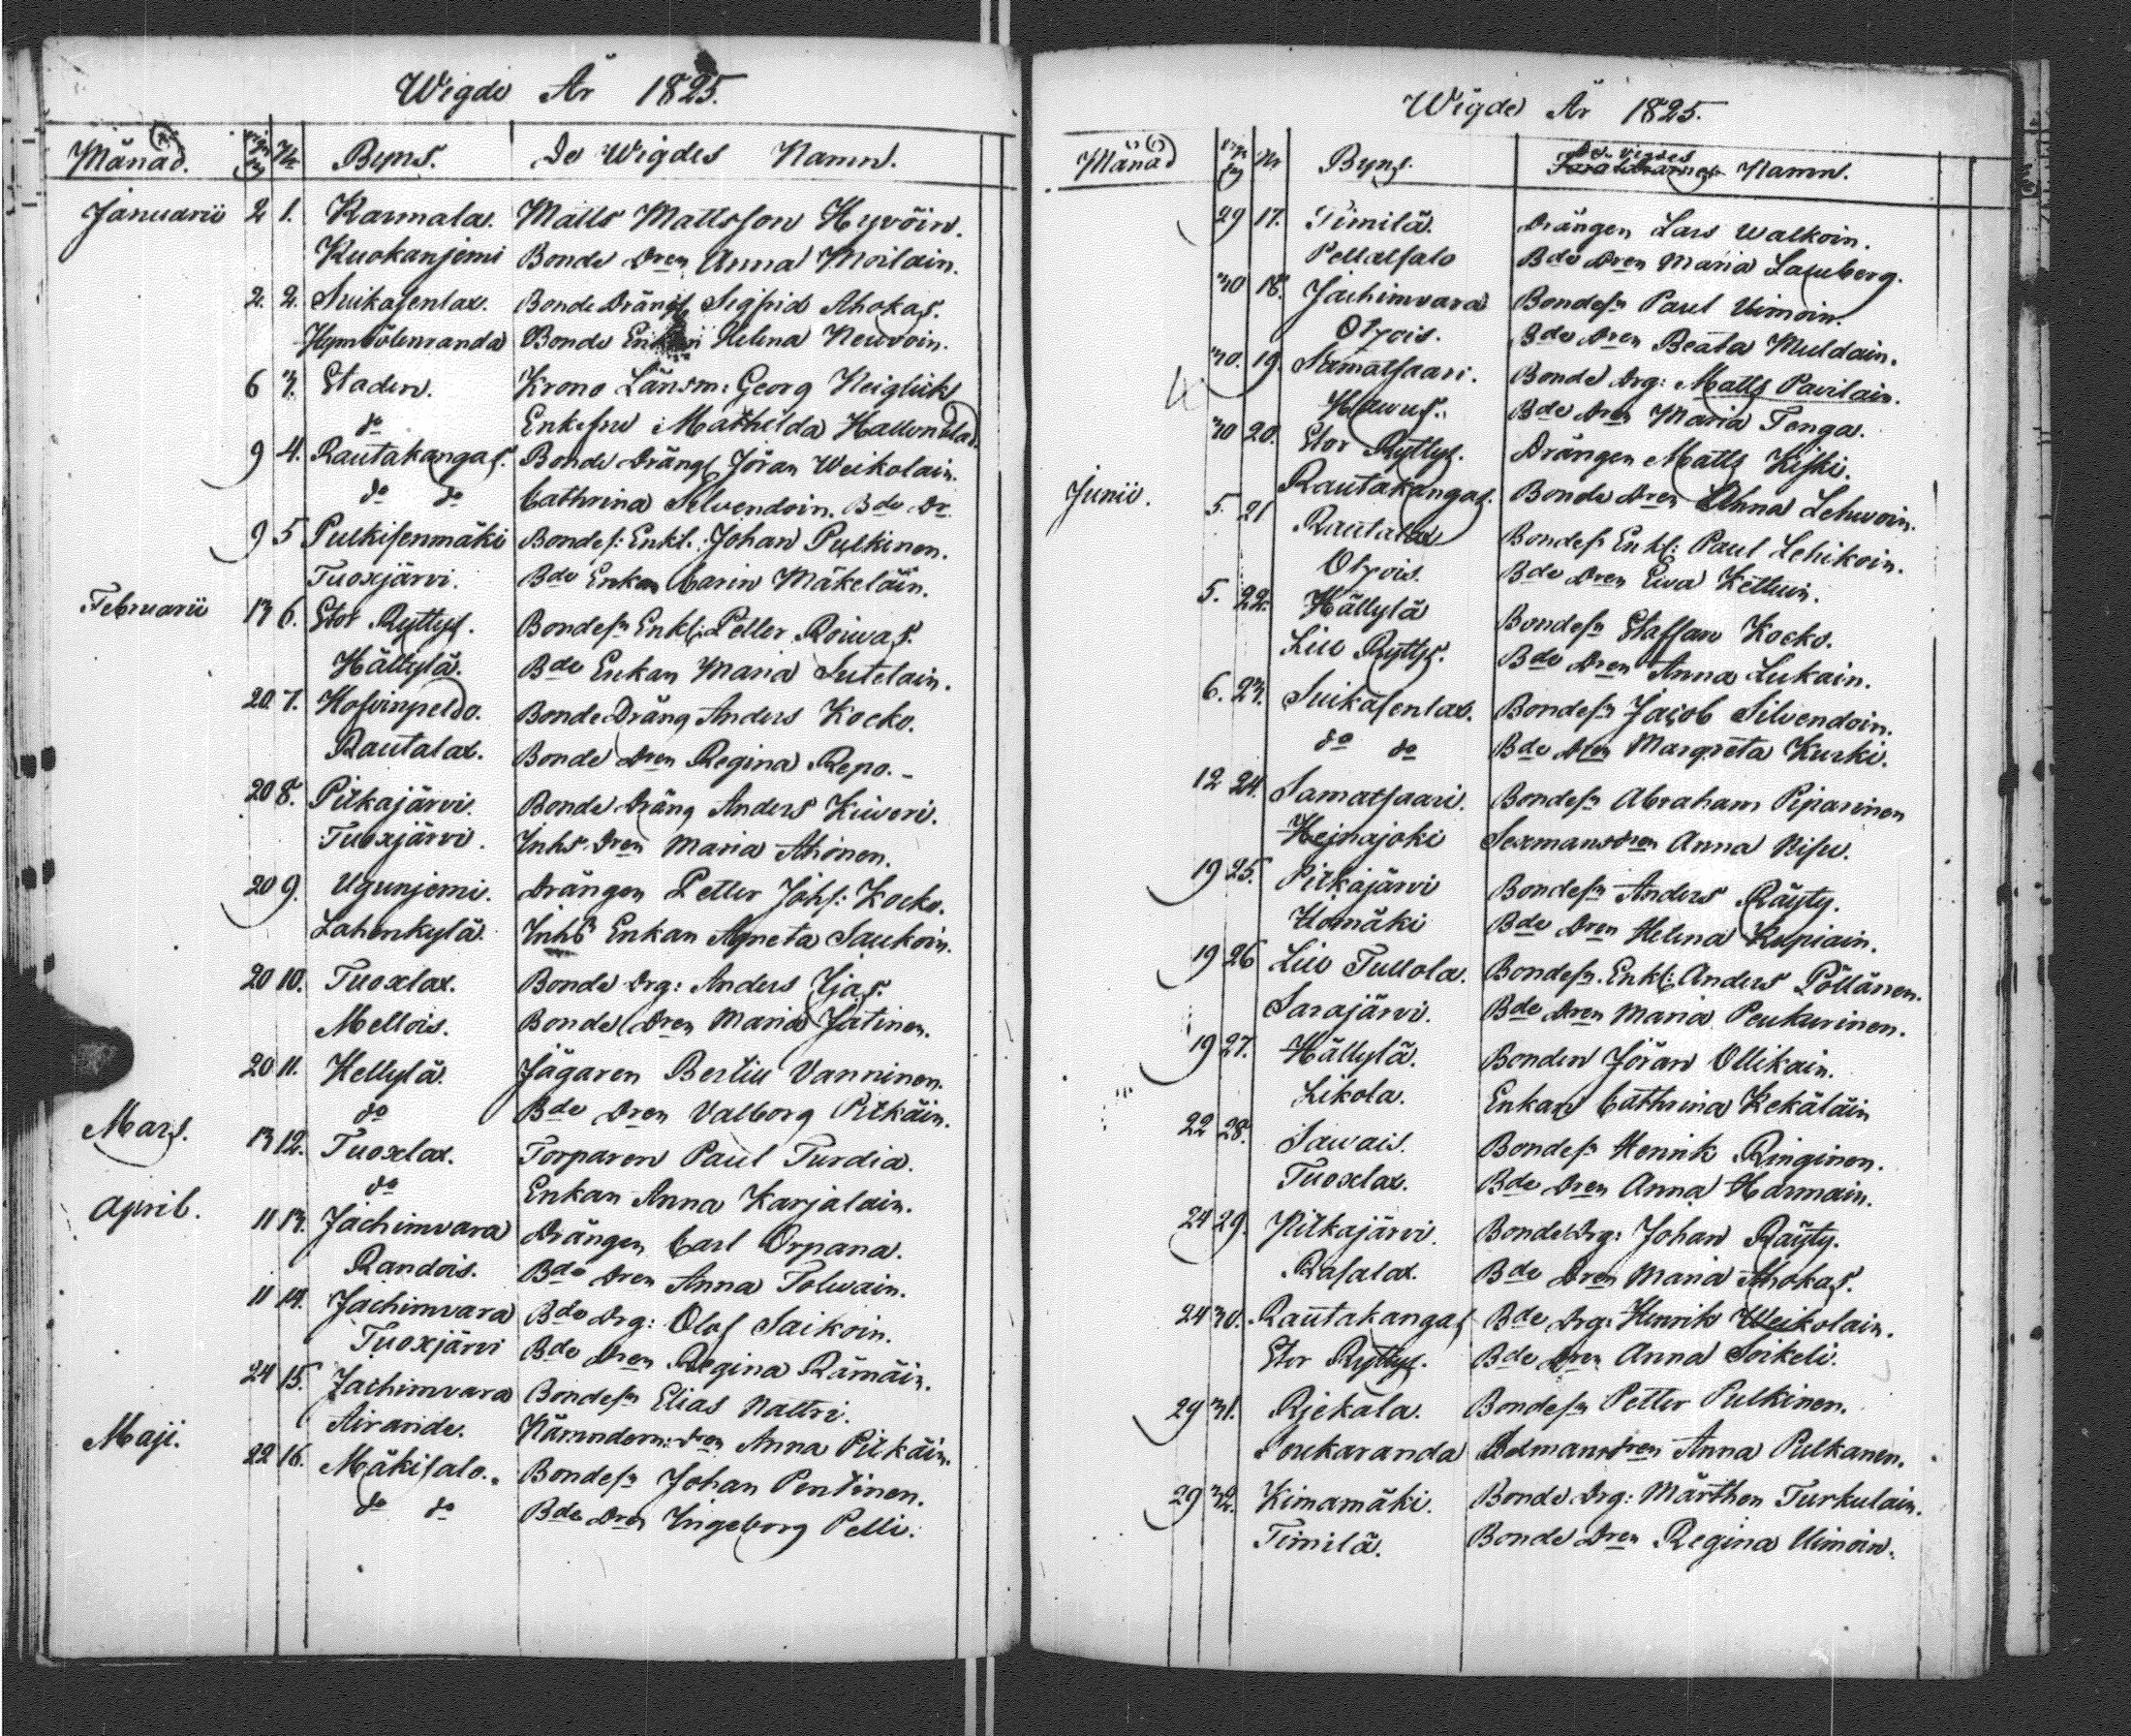 Wigde År 1825.
Månad. Nr Byns. De Wigdes Namn.
Januarii 2 1. Karmala. Matts Mattsson Hyvöin.
Kuokanjemi Bonde Dren Anna Moilain.
2. 2. Suikasenlax. Bonde Drängs Sigfrid Ahokas.
Hymbölenranda Bonde Enkan Helena Newoin.
6 3. Staden. Krono Länsm: Georg Neiglick
do Enkefru Mathilda
9 4. Rautakangas. Bonde Drängs Jöran Weikolain.
do do Cathrina Silvendoin. Bde Dr.
9 5 Pulkisenmäki Bondes: Enkl. Johan Pulkinen.
Tuoxjärvi. Bde Enkan Carin Mäkeläin.
Februarii 13 6. Stor Ryttys. Bondesn Enkl: Petter Roiwas.
Hällylä. Bde Enkan Maria Sutelain.
20 7. Hofvinpeldo. Bonde Dräng Anders Kocko.
Rautalax. Bonde Dren Regina Repo.
20 8. Pitkajärvi. Bonde Dräng Anders Kiweri.
Tuoxjärvi. Inhs Dren Maria Ahonen.
20 9. Ugunjemi. Drängen Petter Johs: Kocko.
Lahenkylä. Inhs Enkan Agneta Saukoin.
20 10. Tuoxlax. Bonde Drg: Anders Ijas.
Mellois. Bonde Dren Maria Jatinen.
20 11. Hellylä. Jägaren Bertill Vanninen.
do Bde Dren Valborg Pitkäin.
Mars. 13 12. Tuoxlax. Torparen Paul Turdia.
do Enkan Anna Karjalain.
April. 11 13. Jachimvara Drängen Carl Orpana.
Randois. Bde Dren Anna Tolwain.
11 14. Jachimvara Bde Drg: Olof Saikoin.
Tuoxjärvi Bde Dren Regina Rämäin.
24 15. Jachimvara Bondesn Elias Nattri.
Airande. Nämndem: Dren Anna Pitkäin.
Maji. 22 16. Mäkisalo. Bondesn Johan Pentinen.
do do Bde Dren Ingeborg Pelli.
Wigde År 1825.
Månad Nr Byns. De vigdes Namn.
29 17. Timilä. Drängen Lars Walkoin.
Pellatsalo Bde Dren Maria Lauberg.
30 18. Jachimvara Bondesn Paul Uimoin.
Otzois. Bde Dren Beata Muldain.
30. 19. Samatsaari. Bonde Drg: Matts Pavilain.
Haws. Bde Dren Maria Tenga.
30 20. Stor Ryttys. Drängen Matts Kiski.
Rautakangas. Bonde Dren Anna Lehwoin.
Junii. 5. 21 Rautalax Bondesn Enkl: Paul Lehikoin.
Otzois. Bde Dren Ewa Kettuin.
5. 22. Hällylä Bondesn Staffan Kocko.
Lill Ryttys. Bde Dren Anna Lukain.
6. 23. Suikasenlax. Bondesn Jacob Silvendoin.
do do Bde Dren Margreta Kurki.
12 24. Samatsaari. Bondesn Abraham Piparinen
Hejnajoki Sexmansdren Anna Nisu.
19 25. Pitkäjärvi Bondesn Anders Räyty.
Ilomäki Bde Dren Helena Kupiain.
19 26 Lill Tullola. Bondesn. Enkl: Anders Pöllänen.
Sarajärvi. Bde Dren Maria Peukurinen.
19 27. Hällylä. Bonden Jöran Ollikain.
Likola. Enkan Cathrina Kekäläin
22 28. Sawais. Bondesn Henrik Ringinen.
Tuoxlax. Bde Dren Anna Harmain.
24 29. Pitkajärvi. Bonde Drg: Johan Räyty.
Rasalax. Bde Dren Maria Ahokas.
24 30. Rautakangas Bde Drg: Henrik Weikolain.
Stor Ryttys. Bde Dren Anna Sorkeli.
29 31. Rjekala. Bondesn Petter Pulkinen.
Poukaranda Anna Pulkanen.
29 32. Kimamäki. Bonde Drg: Mårthen Turkulain.
Timilä. Bonde Dren Regina Uimoin.